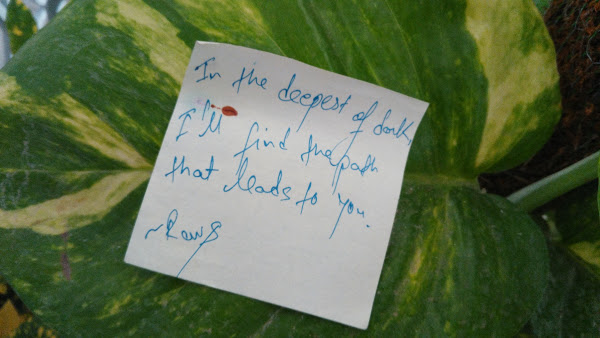 In the deepest of dark,
I'll find the path
that leads to you.